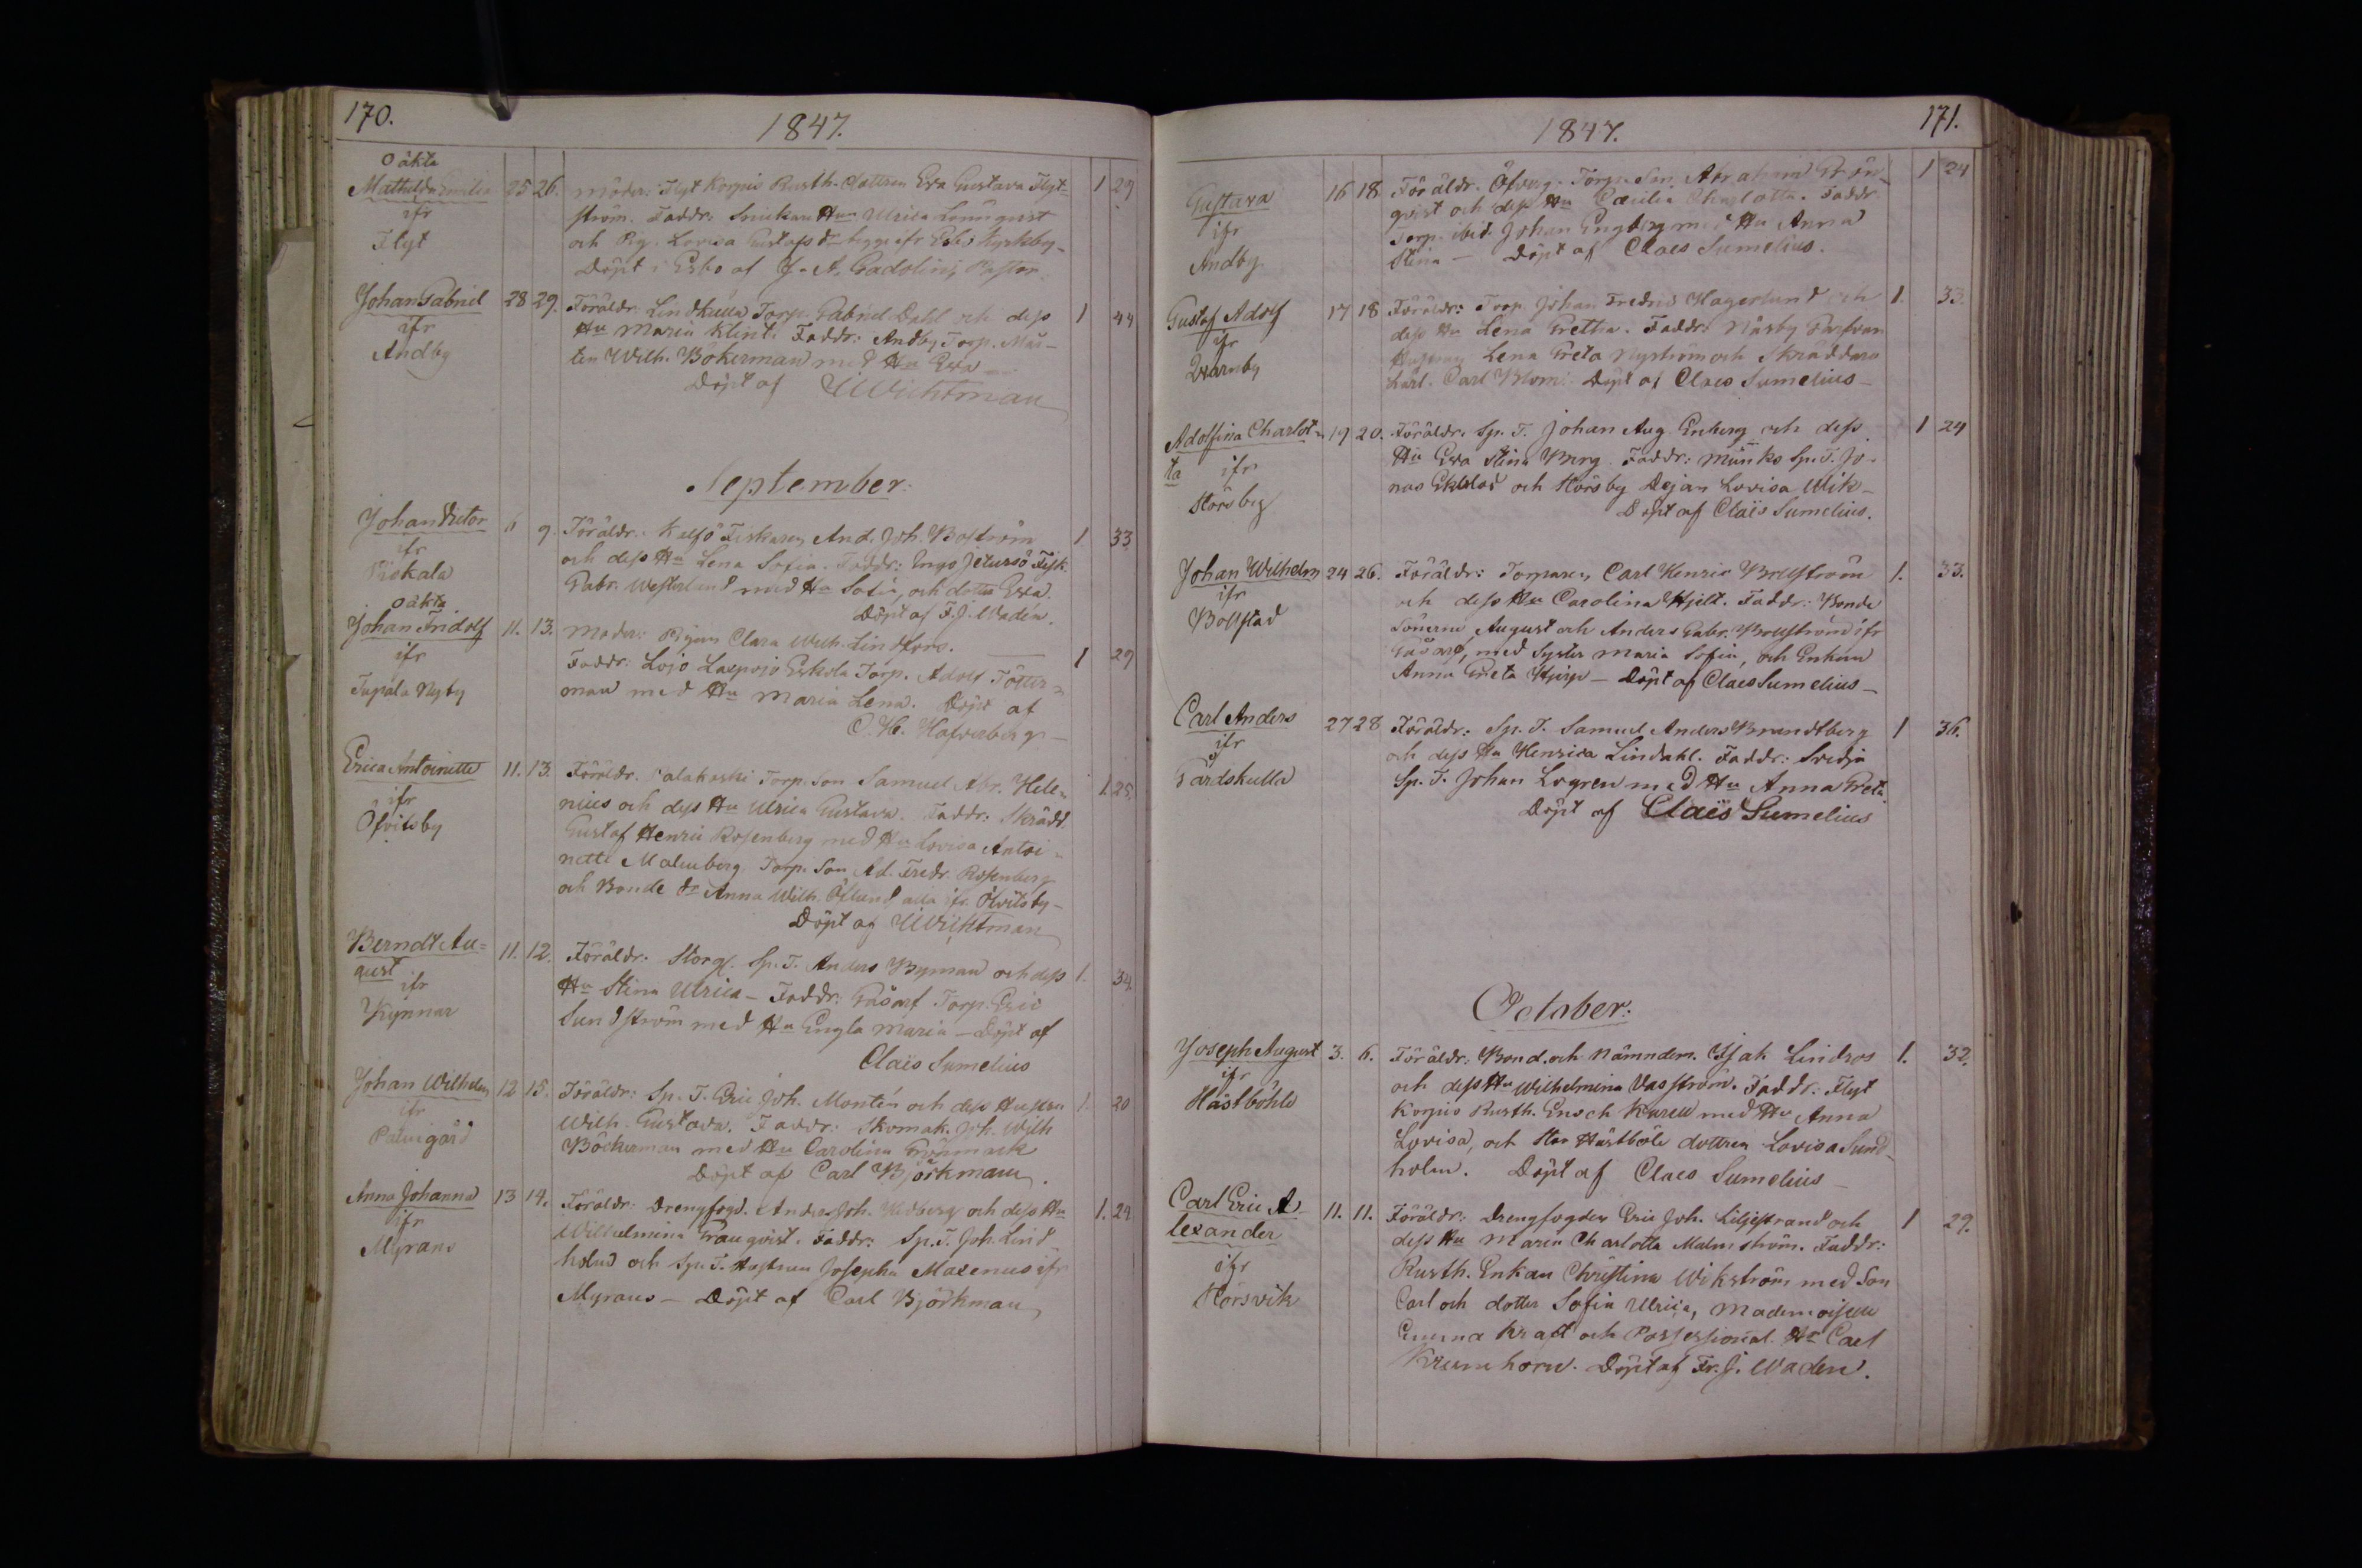 170.
1847.
oäkta
Mathilda Emilia 25 26. Moder: Flyt Korpis Rusth. dottren Eva Gustava Flyt- 1 29
ifr ström. Faddr: Snickare Hu Ulrica Lönnqvist
Flyt och Pig. Lovisa Gustafs dr begge ifr Esbo Kyrkby-
Döpt i Esbo af J. A. Gadolin, Pastor
Johan Gabriel 28 29. Föräldr: Lindkulla Torp. Gabriel Dahl och dess 1 44
ifr Hu Maria Klint. Faddr: Andby Torp. Mår-
Andby ten Wilh. Bökerman med Hu Eva
Döpt af Wichtman
September:
Johan Victor 6 9. Föräldr. Kalfö Fiskaren And. Joh. Boström 1 33
ifr och dess Hu Lena Sofia. Faddr: Ingo Fisk.
Gabr. Westerlund med Hu Sofia, och dotter Eva.
Döpt af F. J. Wadén.
oäkta
Johan Fridolf 11. 13. Moder: Pigan Clara Wilh. Lindfors. 1 29
ifr Faddr: Lojo Laxpojo Eskola Torp. Adolf
Nyby man med Hu Maria Lena. Döpt af
O. H. Hafverberg
Erica Antoinette 11. 13. Föräldr. Torp. Son Samuel Abr. Hele- 1. 25.
ifr nius och dess Hu Ulrica Gustava. Faddr: Skrädd.
Öfvitsby Gustaf Henric Rosenberg med Hu Lovisa Antoi-
nette Malmberg, Torp. Son Ad. Fredr. Rosenberg
och Bonde dr Anna Wilh. Öhlund alla ifr Öfvitsby-
Döpt af Wichtman
Berndt Au= 11. 12. Föräldr. Storg. Sp. T. Anders Byman och dess 1. 34.
gust ifr Hu Stina Ulrica - Faddr: Gåsarf Torp. Eric
Kynnar Sundström med Hu Engla Maria - Döpt af
Claës Sumelius
Johan Wilhelm 12 15. Föräldr: Sp. T. Eric Joh. Montén och dess Hustru 1. 20
ifr Wilh. Gustava. Faddr: Skomak. Joh. Wilh
Böckerman med Hu Carolina Grönmark
Döpt af Carl Björkman.
Anna Johanna 13 14. Föräldr: Drengfogd. Anders Joh. Hedberg och dess Hu 1. 24
ifr Wilhelmina Granqvist. Faddr: Sp. T. Joh. Lind
Myrans holm och Sp. T. Hustrun Josepha Maxenius ifr
Myrans - Döpt af Carl Björkman
1847.
171.
Gustava 16 18. Föräldr. Öfverg. Torp. Son. Abraham Grön- 1 24
ifr qvist och dess Hu Cæcilia Charlotta. Faddr
Andby Torp. ibid. Johan Engberg med Hu Anna
Stina - Döpt af Claes Sumelius.
Gustaf Adolf 17 18 Föräldr: Torp. Johan Fredric Hagerlund och 1. 33.
ifr dess Hu Lena Gretha. Faddr: Näsby
Qvarnby Hustrun Lena Greta Nyström och Skräddare
Lärl. Carl Blom. Döpt af Claes Sumelius-
Adolfina Charlot- 19 20. Föräldr. Sp. T. Johan Aug. Enberg och dess 1 24
ta ifr Hu Eva Stina Berg. Faddr: Munks Sp. T. Jo-
Störsby nas Ekblad och Störsby Dejan Lovisa Wik-
Döpt af Claës Sumelius.
Johan Wilhelm 24 26. Föräldr: Torparen Carl Henric Bollström 1. 33.
ifr och dess Hu Carolina Hjelt. Faddr: Bonde
Bollstad Sönerne August och Anders Gabr. Bollström ifr
Gåsarf, med Syster Maria Sofia, och Enkan
Anna Greta - Döpt af Claes Sumelius-
Carl Anders 27 28 Föräldr: Sp. T. Samuel Anders Brandtberg 1 36.
ifr och dess Hu Henrica Lindahl. Faddr: Svedja
Gårdskulla Sp. T. Johan Logren med Hu Anna Greta
Döpt af Claës Sumelius
October:
Joseph August 3. 6. Föräldr: Bond. och Nämndem. Isak Lindros 1. 32.
ifr och dess Hu Wilhelmina Vasström. Faddr: Flyt
Hästböhle Korpis Rusth. Enoch Karell med Hu Anna
Lovisa, och Stor Hästböle dottren Lovisa Sund-
holm. Döpt af Claes Sumelius-
Carl Eric A- 11. 11. Föräldr: Drengfogden Eric Joh. Liljestrand och 1 29.
lexander dess Hu Maria Charlotta Malmström. Faddr:
ifr Rusth. Enkan Christina Wikström med Son
Störsvik Carl och dotter Sofia Ulrica, Mademoiselle
Emma Kraft och Possessional. Hr Carl
Krumhorn. Döpt af Fr. J. Waden.